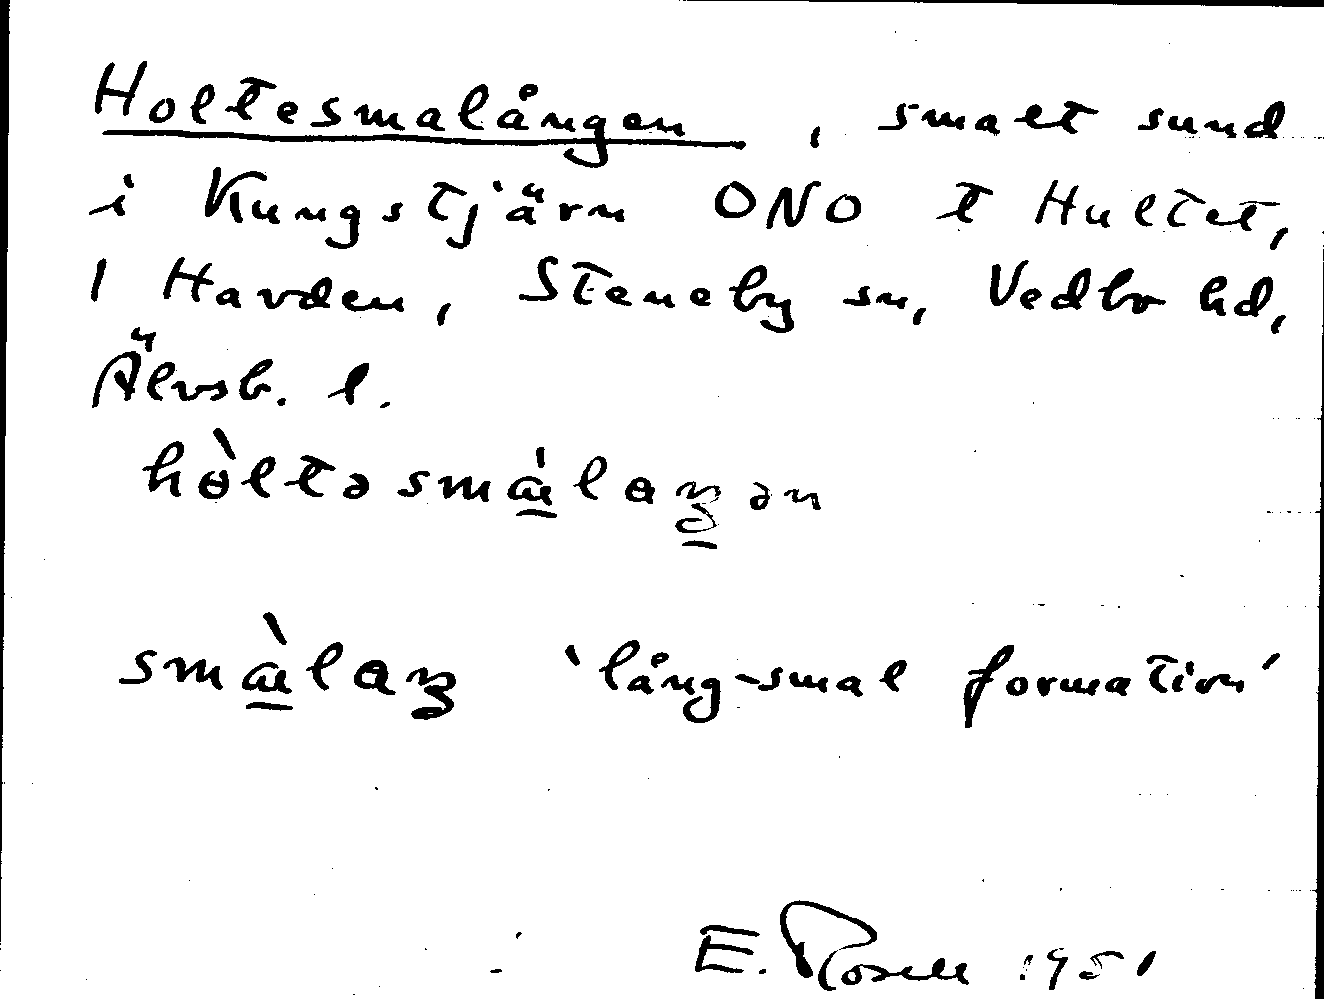 Holtesmalången, smalt sund
i Kungstjärn ONO t Hultet,
1 Havden, Steneby sn, Vedbo hd,
Älvsb. l.
hɵ̀ltəsmáe̲laŋ̲ən
smàe̲laŋ 'lång-smal formation'
E. Rosell 1951